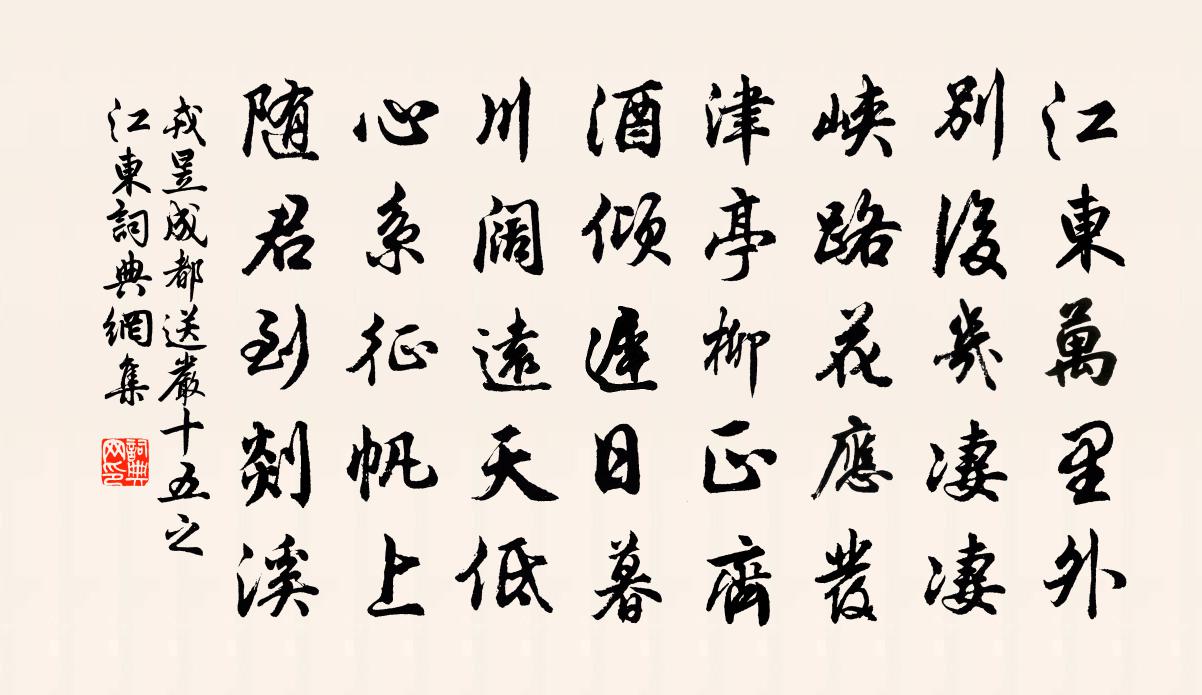 江東萬里外
別後幾凄凄
峽路花應發
津亭柳正齊
酒傾遲日暮
川闊遠天低
心系征帆上
随君到剡溪
戎昱成都送嚴十五之
江東詞典網集
詞典
网印